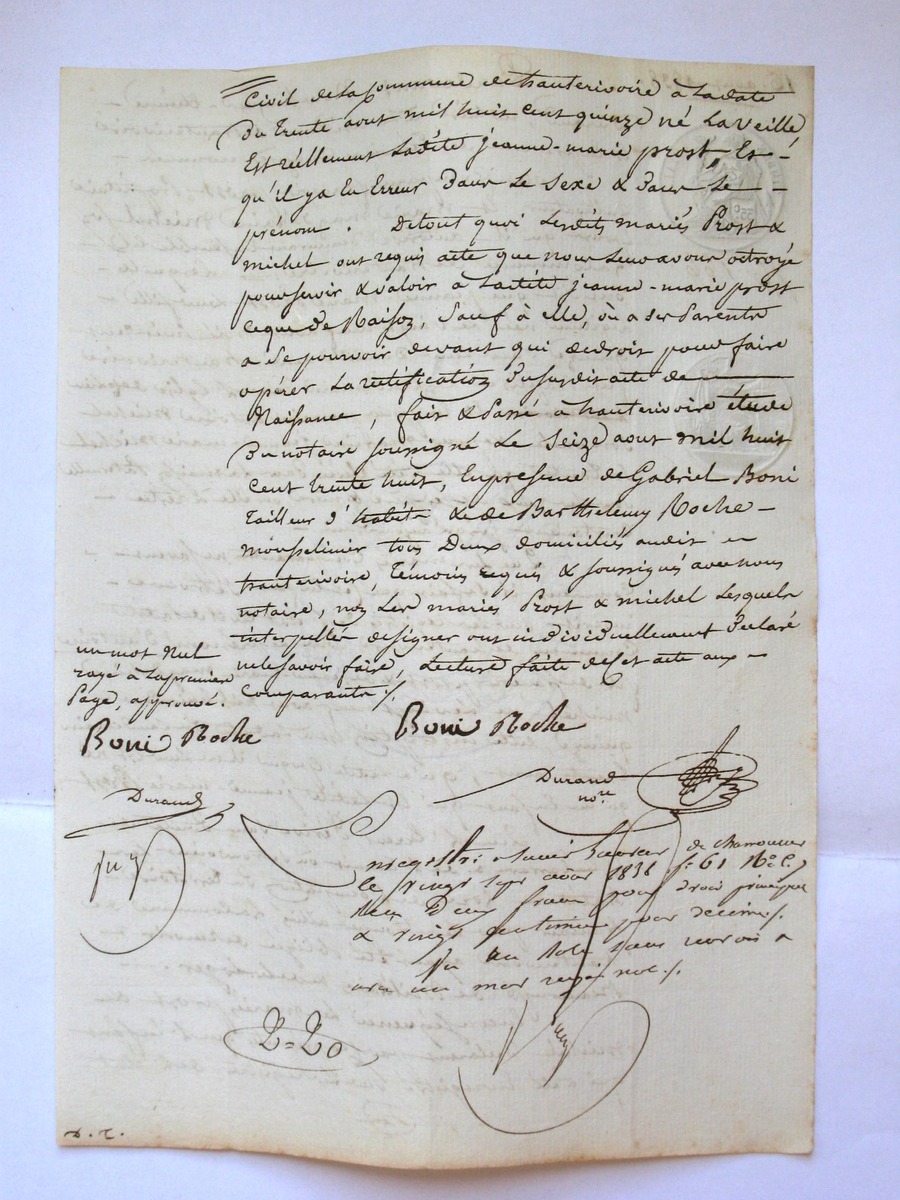 Civil de la Commune de hauterivoire à la date
du trente aout mil huit cent quinze né la veille
Est réellement ladite jeanne-marie prost, Et -
qu'il y a Eu Erreur dans le sexe & dans le -
prénom. De tout quoi lesdits mariés Prost &
michel ont requis acte que nous leur avons octroyé
pour servir & valoir à ladite jeanne-marie prost
ce que de Raison, sauf à elle, ou à ses parents
a se pourvoir devant qui de droit pour faire
opérer la rectification du susdit acte de
Naissance, fait & Passé à hauterivoire étude
du notaire soussigné le seize aout mil huit
cent trente huit, En presence de Gabriel Boni
tailleur d'habits & de Barthelemy Roche -
mousselinier tous Deux domiciliés audit -
hauterivoire, témoins requis & soussignés avec nous
notaire, non les mariés Prost & michel lesquels
interpellés de signer ont individuellement déclaré
ne le savoir faire, lecture faite de cet acte aux -
comparants ./.
un mot nul
rayé à la premiere
page, approuvé.
Boni Roche
Boni Roche
Durand
Durand
nore
Enregistré à Saint Laurent de chamousset
le vingt sept août 1838 fo 61 Ro C. 7
Reçu Deux francs pour droit principal
& vingt centimes pour décime ./.
un mot rayé nul ./.
2=20
D. T.